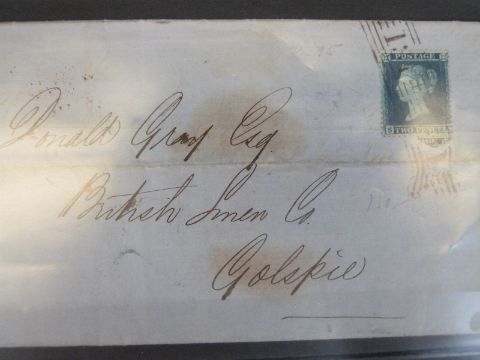 POSTAGE
TWO PENCE
Donald Gray Esq.
British Linen Co.
Golspie